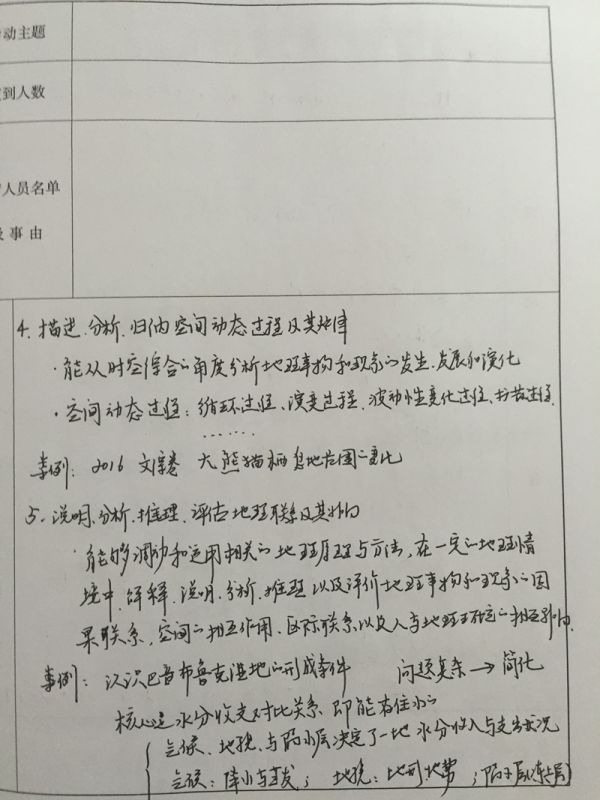 动主题
到人数
人员名单
事由
4. 描述、分析、归纳空间动态过程及其规律
· 能从时空综合的角度分析地理事物和现象的发生、发展和演化
· 空间动态过程：循环过程、演变过程、波动性变化过程、扩散过程
……
案例：2016 文综卷 大熊猫栖息地范围的变化
5. 说明、分析、推理、评估地理联系及其
· 能够调动和运用相关的地理原理与方法，在一定的地理情
境中，解释、说明、分析、推理以及评价地理事物和现象的因
果联系，空间的相互作用、区际联系以及人与地理环境的相互影响
案例：认识巴音布鲁克湿地的形成条件 问题复杂→简化
核心是水分收支对比关系，即能存住水的
气候、地貌、与隔水层决定了一地水分收入与支出状况
气候：降水与蒸发；地貌：地形地势；隔水层(冻土层)